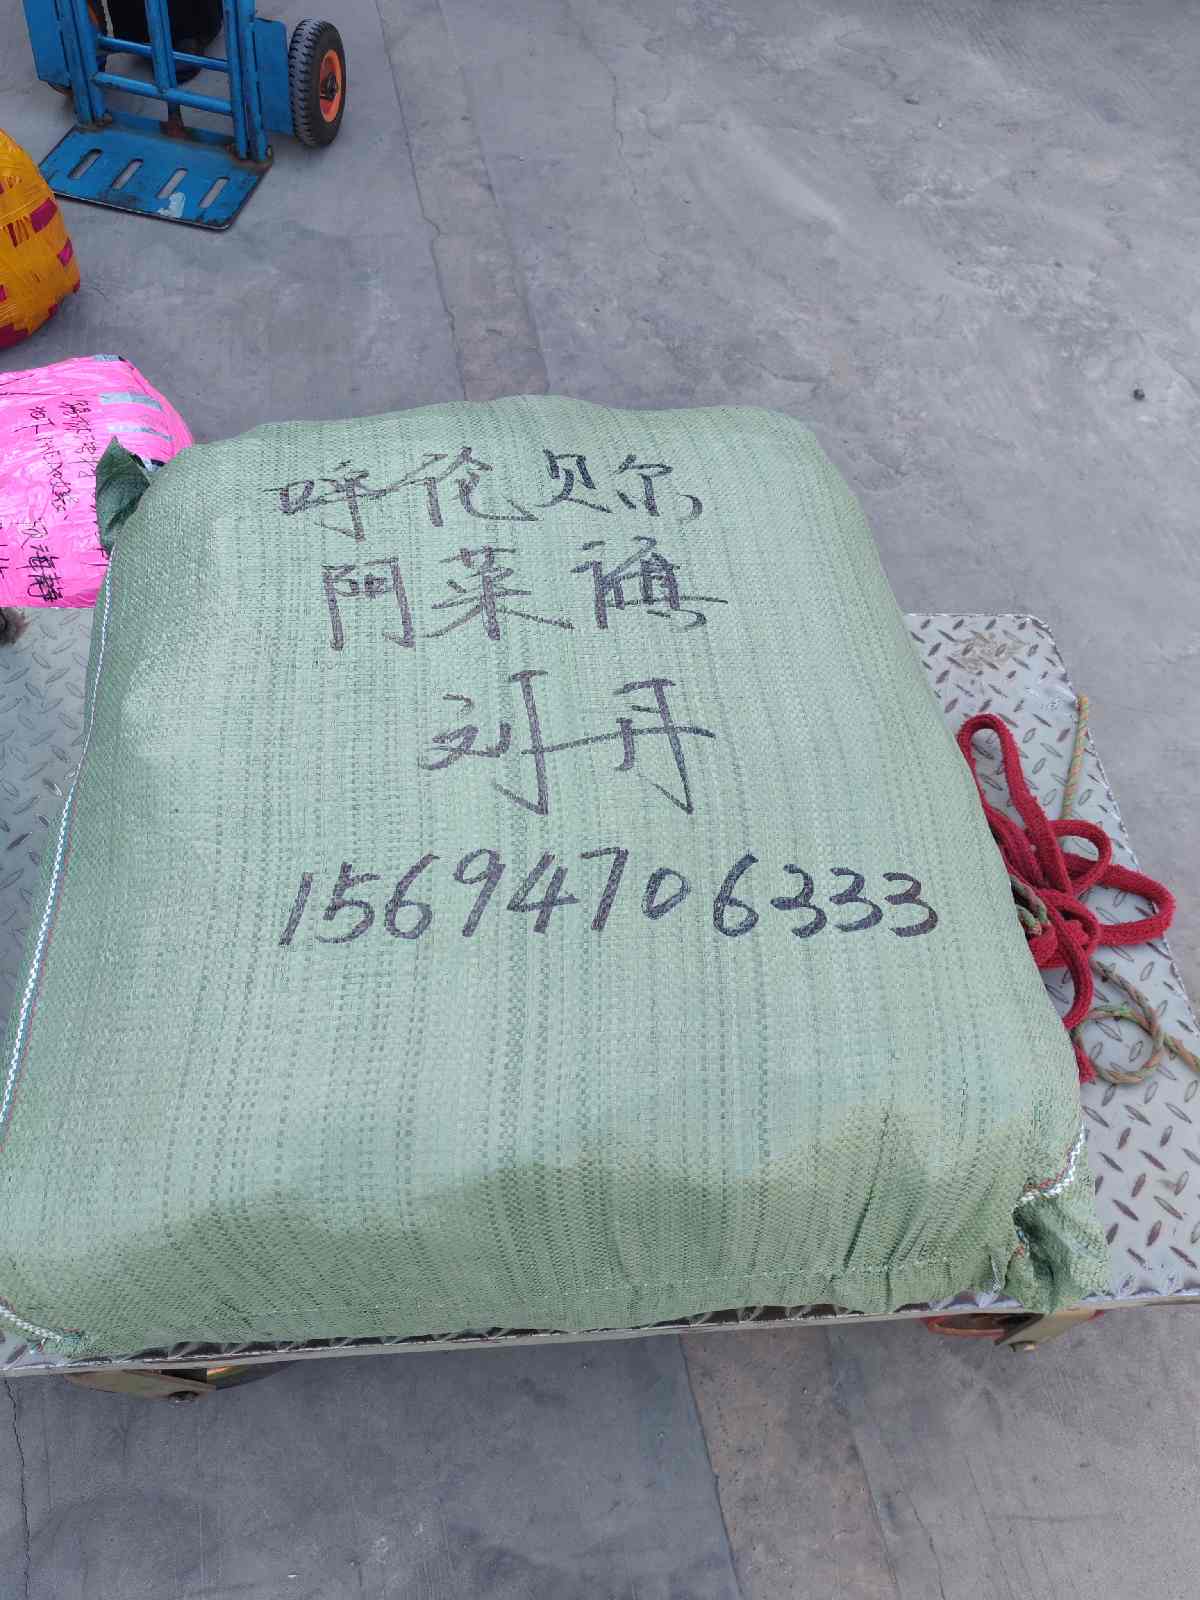 呼伦贝尔
阿莱旗
刘丹
15694706333